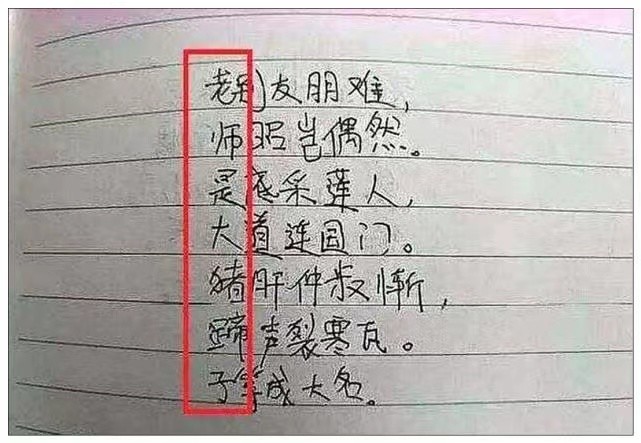 老到友朋难，
师昭岂偶然。
是底采莲人，
大道连国门。
猪肝仲叔惭，
蹄声裂寒瓦。
子等成大名。